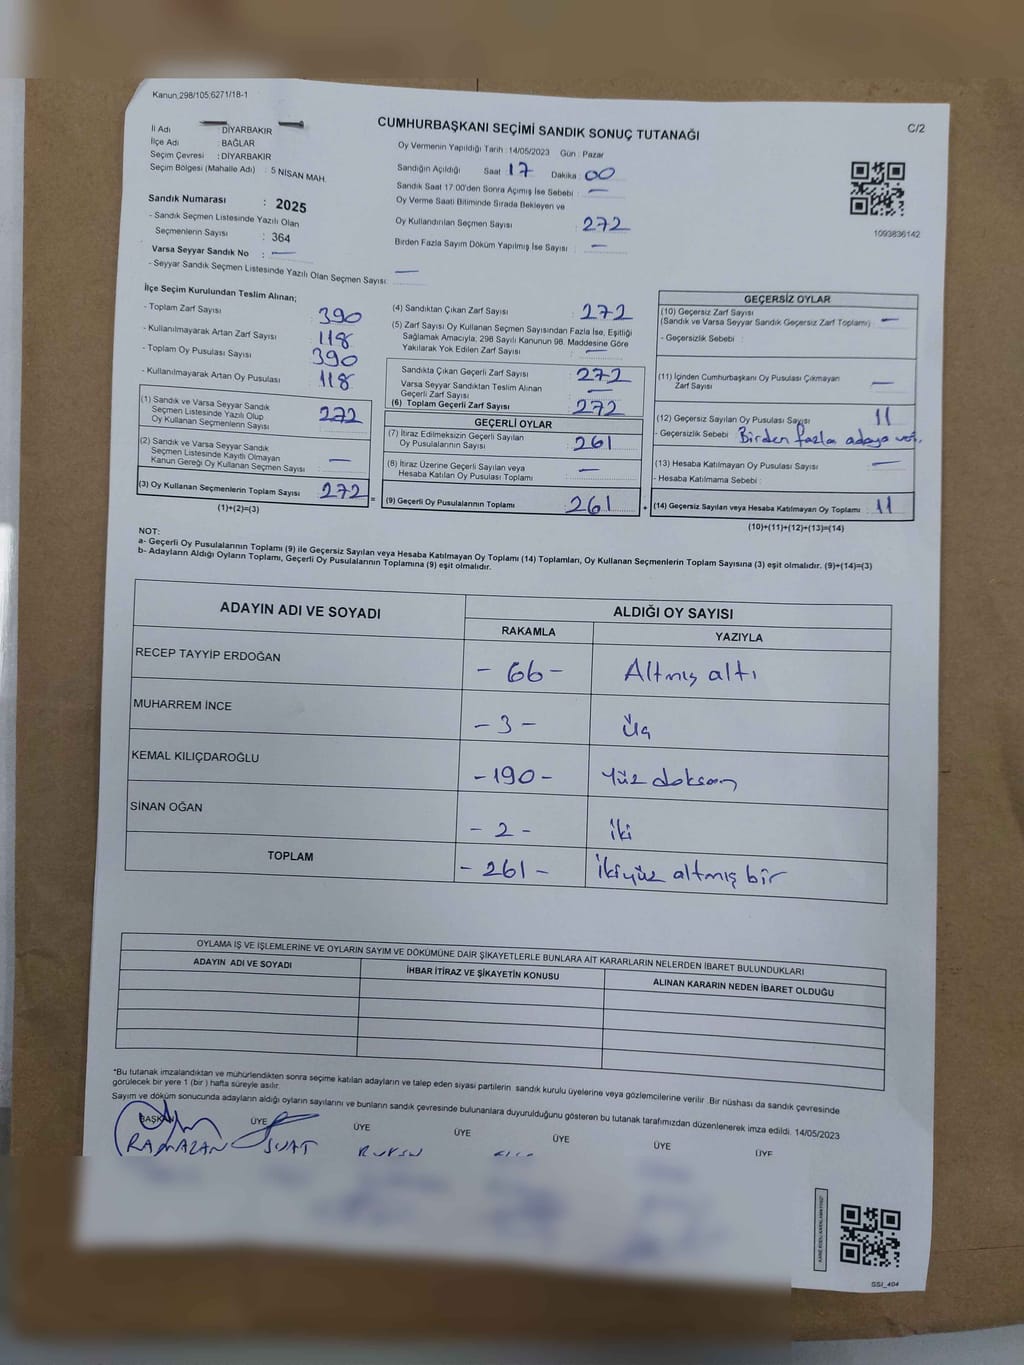 Kanun,298/105,6271/18-1
C/2
CUMHURBAŞKANI SEÇİMİ SANDIK SONUÇ TUTANAĞI
İl Adı : DİYARBAKIR
İlçe Adı : BAĞLAR
Seçim Çevresi : DİYARBAKIR
Seçim Bölgesi (Mahalle Adı) : 5 NİSAN MAH.
Sandık Numarası : 2025
- Sandık Seçmen Listesinde Yazılı Olan
Seçmenlerin Sayısı : 364
Varsa Seyyar Sandık No : —
- Seyyar Sandık Seçmen Listesinde Yazılı Olan Seçmen Sayısı: —
Oy Vermenin Yapıldığı Tarih : 14/05/2023 Gün : Pazar
Sandığın Açıldığı Saat 17 Dakika 00
Sandık Saat 17:00'den Sonra Açımış İse Sebebi : —
Oy Verme Saati Bitiminde Sırada Bekleyen ve
Oy Kullandırılan Seçmen Sayısı : 272
Birden Fazla Sayım Döküm Yapılmış İse Sayısı : —
1093836142
İlçe Seçim Kurulundan Teslim Alınan;
- Toplam Zarf Sayısı : 390
- Kullanılmayarak Artan Zarf Sayısı : 118
- Toplam Oy Pusulası Sayısı : 390
- Kullanılmayarak Artan Oy Pusulası : 118
(1) Sandık ve Varsa Seyyar Sandık
Seçmen Listesinde Yazılı Olup
Oy Kullanan Seçmenlerin Sayısı : 272
(2) Sandık ve Varsa Seyyar Sandık
Seçmen Listesinde Kayıtlı Olmayan
Kanun Gereği Oy Kullanan Seçmen Sayısı : —
(3) Oy Kullanan Seçmenlerin Toplam Sayısı : 272 =
(1)+(2)=(3)
(4) Sandıktan Çıkan Zarf Sayısı : 272
(5) Zarf Sayısı Oy Kullanan Seçmen Sayısından Fazla İse, Eşitliği
Sağlamak Amacıyla; 298 Sayılı Kanunun 98. Maddesine Göre
Yakılarak Yok Edilen Zarf Sayısı : —
Sandıkta Çıkan Geçerli Zarf Sayısı : 272
Varsa Seyyar Sandıktan Teslim Alınan
Geçerli Zarf Sayısı : —
(6) Toplam Geçerli Zarf Sayısı : 272
GEÇERLİ OYLAR
(7) İtiraz Edilmeksizin Geçerli Sayılan
Oy Pusulalarının Sayısı : 261
(8) İtiraz Üzerine Geçerli Sayılan veya
Hesaba Katılan Oy Pusulası Toplamı : —
(9) Geçerli Oy Pusulalarının Toplamı : 261 +
GEÇERSİZ OYLAR
(10) Geçersiz Zarf Sayısı
(Sandık ve Varsa Seyyar Sandık Geçersiz Zarf Toplamı) : —
- Geçersizlik Sebebi :
(11) İçinden Cumhurbaşkanı Oy Pusulası Çıkmayan
Zarf Sayısı : —
(12) Geçersiz Sayılan Oy Pusulası Sayısı : 11
- Geçersizlik Sebebi : Birden fazla adaya
(13) Hesaba Katılmayan Oy Pusulası Sayısı : —
- Hesaba Katılmama Sebebi :
(14) Geçersiz Sayılan veya Hesaba Katılmayan Oy Toplamı : 11
(10)+(11)+(12)+(13)=(14)
NOT:
a- Geçerli Oy Pusulalarının Toplamı (9) ile Geçersiz Sayılan veya Hesaba Katılmayan Oy Toplamı (14) Toplamları, Oy Kullanan Seçmenlerin Toplam Sayısına (3) eşit olmalıdır. (9)+(14)=(3)
b- Adayların Aldığı Oyların Toplamı, Geçerli Oy Pusulalarının Toplamına (9) eşit olmalıdır.
ADAYIN ADI VE SOYADI ALDIĞI OY SAYISI
RAKAMLA YAZIYLA
RECEP TAYYİP ERDOĞAN - 66 - Altmış altı
MUHARREM İNCE - 3 - Üç
KEMAL KILIÇDAROĞLU - 190 - Yüz doksan
SİNAN OĞAN - 2 - İki
TOPLAM - 261 - İkiyüz altmış bir
OYLAMA İŞ VE İŞLEMLERİNE VE OYLARIN SAYIM VE DÖKÜMÜNE DAİR ŞİKAYETLERLE BUNLARA AİT KARARLARIN NELERDEN İBARET BULUNDUKLARI
ADAYIN ADI VE SOYADI İHBAR İTİRAZ VE ŞİKAYETİN KONUSU ALINAN KARARIN NEDEN İBARET OLDUĞU
*Bu tutanak imzalandıktan ve mühürlendikten sonra seçime katılan adayların ve talep eden siyasi partilerin sandık kurulu üyelerine veya gözlemcilerine verilir .Bir nüshası da sandık çevresinde
görülecek bir yere 1 (bir ) hafta süreyle asılır.
Sayım ve döküm sonucunda adayların aldığı oyların sayılarını ve bunların sandık çevresinde bulunanlara duyurulduğunu gösteren bu tutanak tarafımızdan düzenlenerek imza edildi. 14/05/2023
BAŞKAN ÜYE ÜYE ÜYE ÜYE ÜYE ÜYE
RAMAZAN SUAT
SSI_404